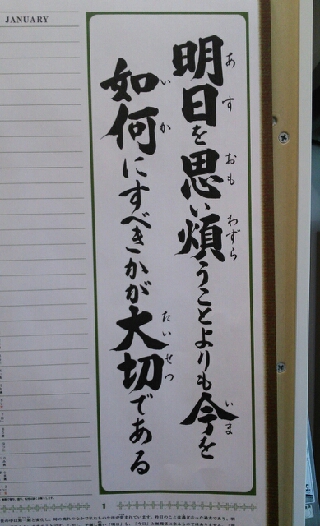 JANUARY
明日を思い煩うことよりも今を
如何にすべきかが大切である
あす おも わずら いま
いか たいせつ
1